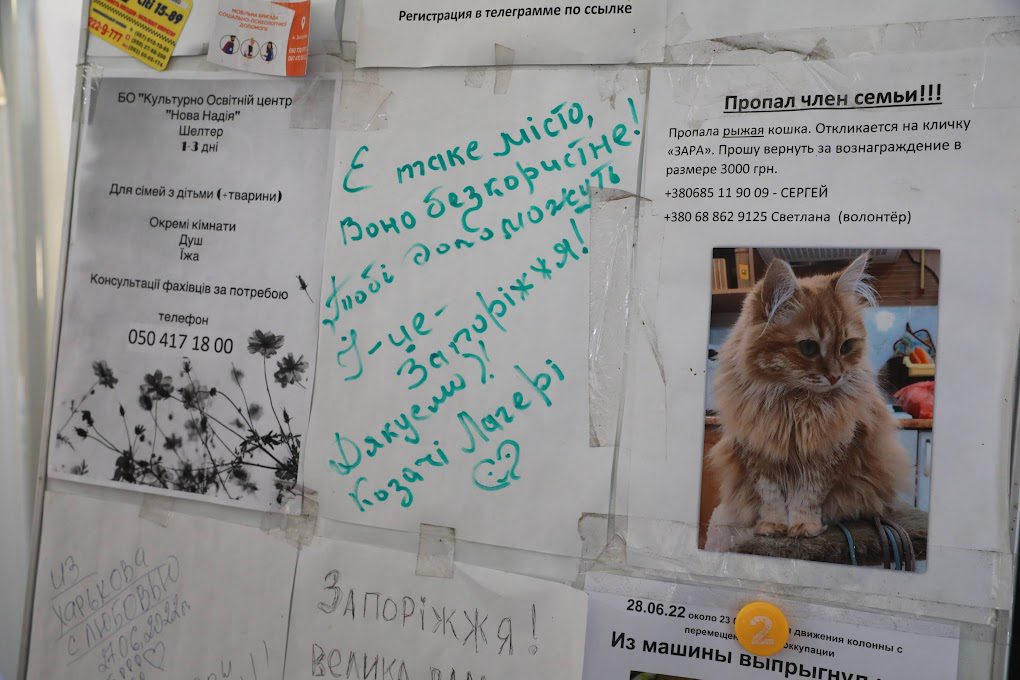 Citi 15-89
222-9-777
МОБІЛЬНА БРИГАДА
СОЦІАЛЬНО-ПСИХОЛОГІЧНОЇ
ДОПОМОГИ
Регистрация в телеграмме по ссылке
1
БО "Культурно Освітній центр
"Нова Надія"
Шелтер
1-3 дні
Для сімей з дітьми (+тварини)
Окремі кімнати
Душ
Їжа
Консультації фахівців за потребою
телефон
050 417 18 00
Є таке місто,
Воно безкористне!
Тобі допоможуть
І-це-
Запоріжжя!
Дякуємо!
Козачі Лагері
Пропал член семьи!!!
Пропала рыжая кошка. Откликается на кличку
«ЗАРА». Прошу вернуть за вознаграждение в
размере 3000 грн.
+380685 11 90 09 - СЕРГЕЙ
+380 68 862 9125 Светлана (волонтёр)
ИЗ
ХАРЬКОВА
С ЛЮБОВЬЮ
27.06.2022г.
ЗАПОРІЖЖЯ!
ВЕЛИКА
28.06.22 около 23 движения колонны с
оккупации
Из машины выпрыгнул
2